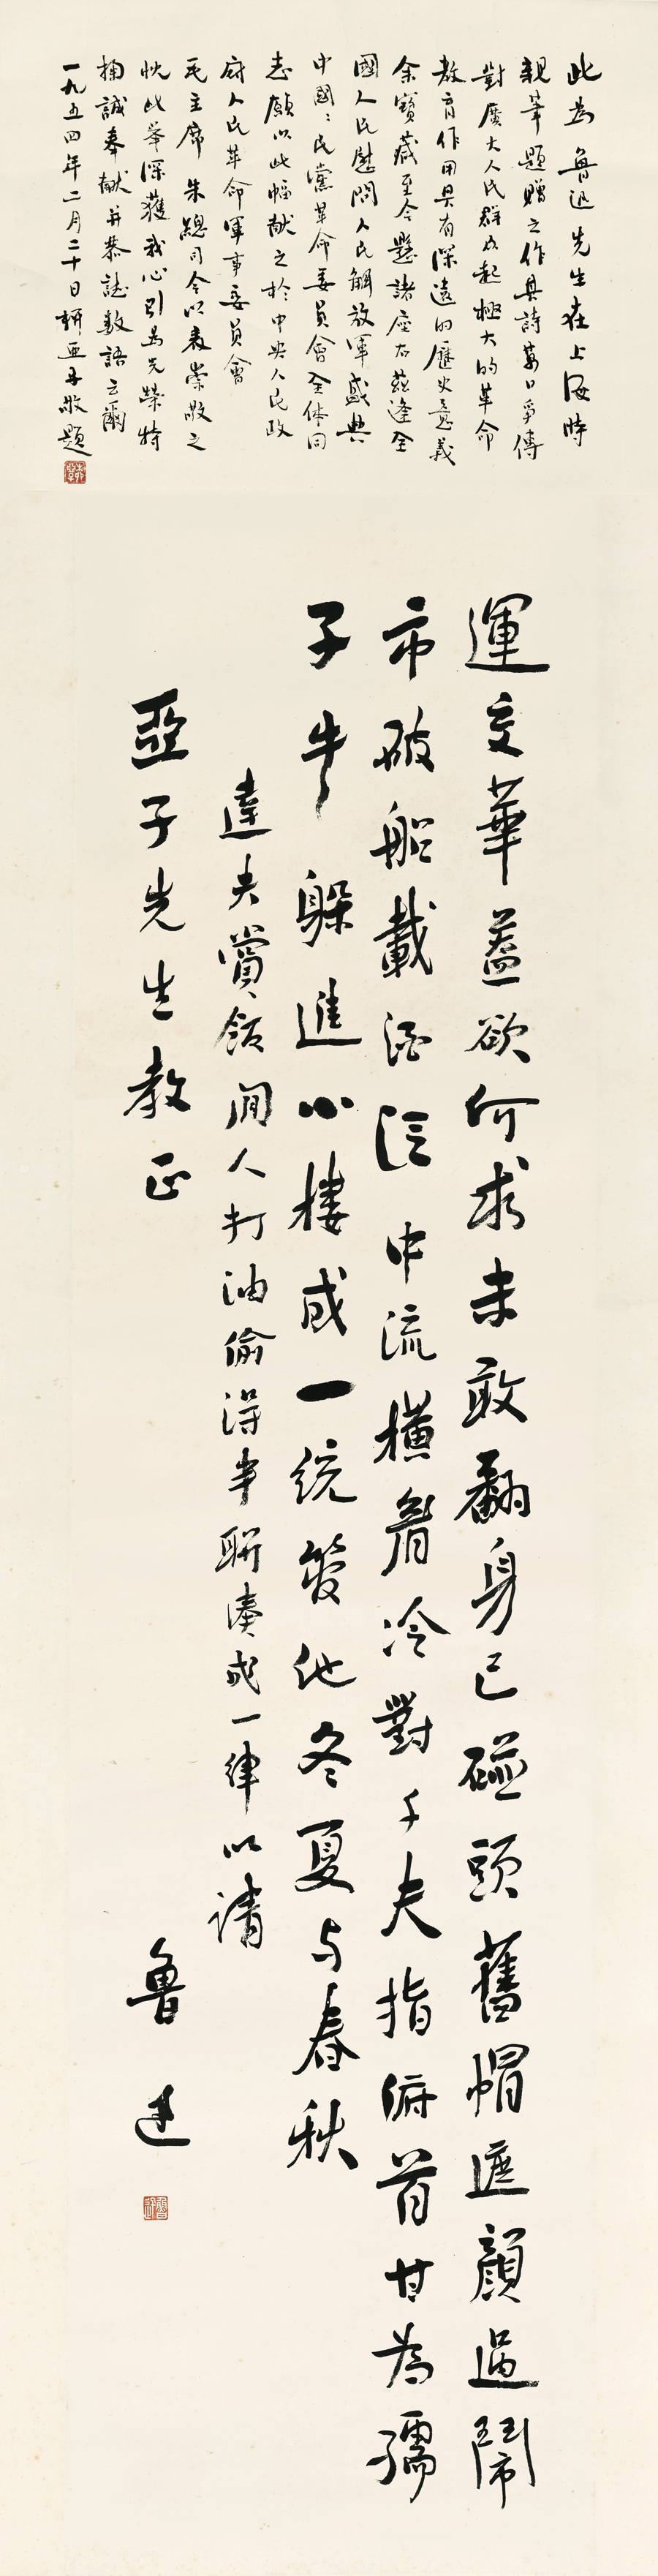 此為魯迅先生在上海時
親筆題贈之作其詩萬口爭傳
對廣大人民群众起極大的革命
教育作用具有深遠的歷史意義
余寶藏至今懸諸座右茲逢全
國人民慰問人民解放軍盛典
中國國民黨革命委員會全体同
志願以此幅献之於中央人民政
府人民革命軍事委員會
毛主席 朱總司令以表崇敬之
忱此舉深獲我心引為光榮特
掬誠奉献并恭誌數語云爾
一九五四年二月二十日柳亞子敬題
運交華蓋欲何求未敢翻身已碰頭舊帽遮顏過鬧
市破船載酒泛中流橫眉冷對千夫指俯首甘為孺
子牛躲進小樓成一統管他冬夏与春秋
達夫賞飯閒人打油偷得半聯湊成一律以請
亞子先生教正
魯迅